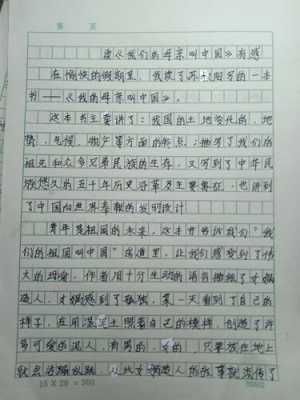 第 页
读《我们的母亲叫中国》有感
在愉快的假期里，我读了苏叔阳写的一本
书——《我的母亲叫中国》。
这本书主要讲了：我国的土地变化的，地
势，气候，物产等方面的特点；描写了我们的
祖先和众多兄弟民族的生存，又写到了中华民
族悠久的五千年历史沿革及主要象征，也讲到
了中国向世界奉献的发明设计
青年是祖国的未来，这本书告诉我们“我
们的祖国叫中国”在这里，让我们感受到了伟
大的母爱，作者用十分生动的语言描绘了女娲
造人，女娲感到了孤独，某一天看到了自己的
样子，在用泥土照着自己的模样，创造了许
多可爱的泥人，有男的，女的，只要放在地上
就会活蹦乱跳 从此女娲造人的故事就流传了
15 X 20 = 300